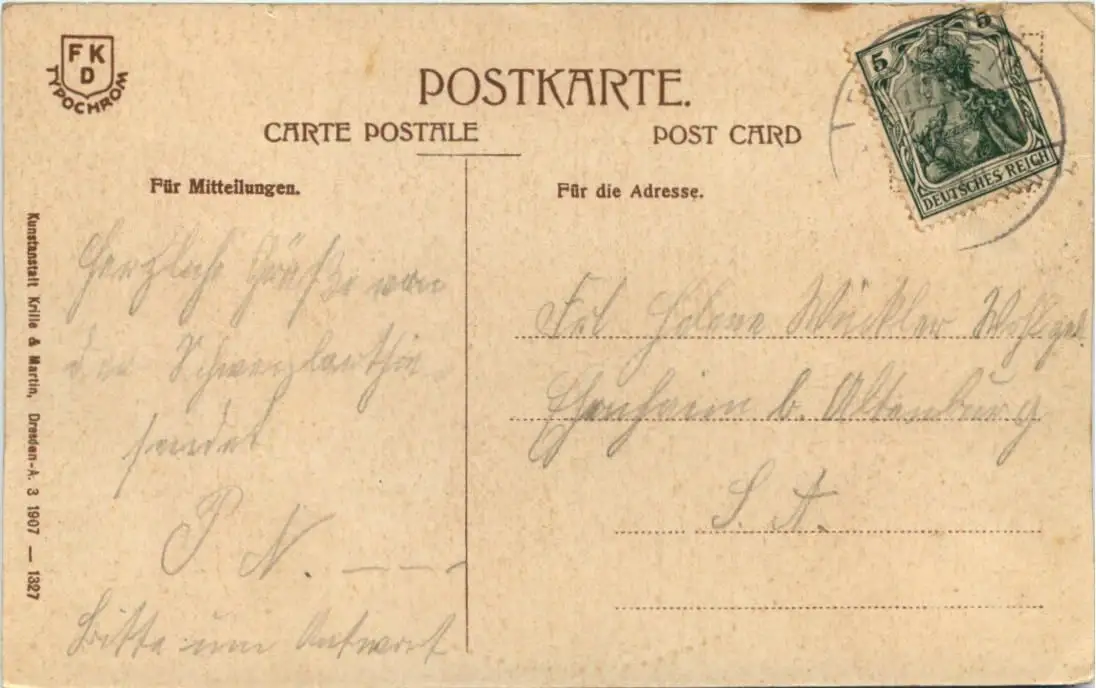 FK
D
TYPOCHROM
POSTKARTE.
CARTE POSTALE
POST CARD
5
5
DEUTSCHES REICH
Für Mitteilungen.
Herzliche Grüße von
der
sendet
P. N.
Bitte um Antwort
Für die Adresse.
Frl Helene Winkler
b. Altenburg
S. A.
Kunstanstalt Krille & Martin, Dresden-A. 3 1907 — 1327